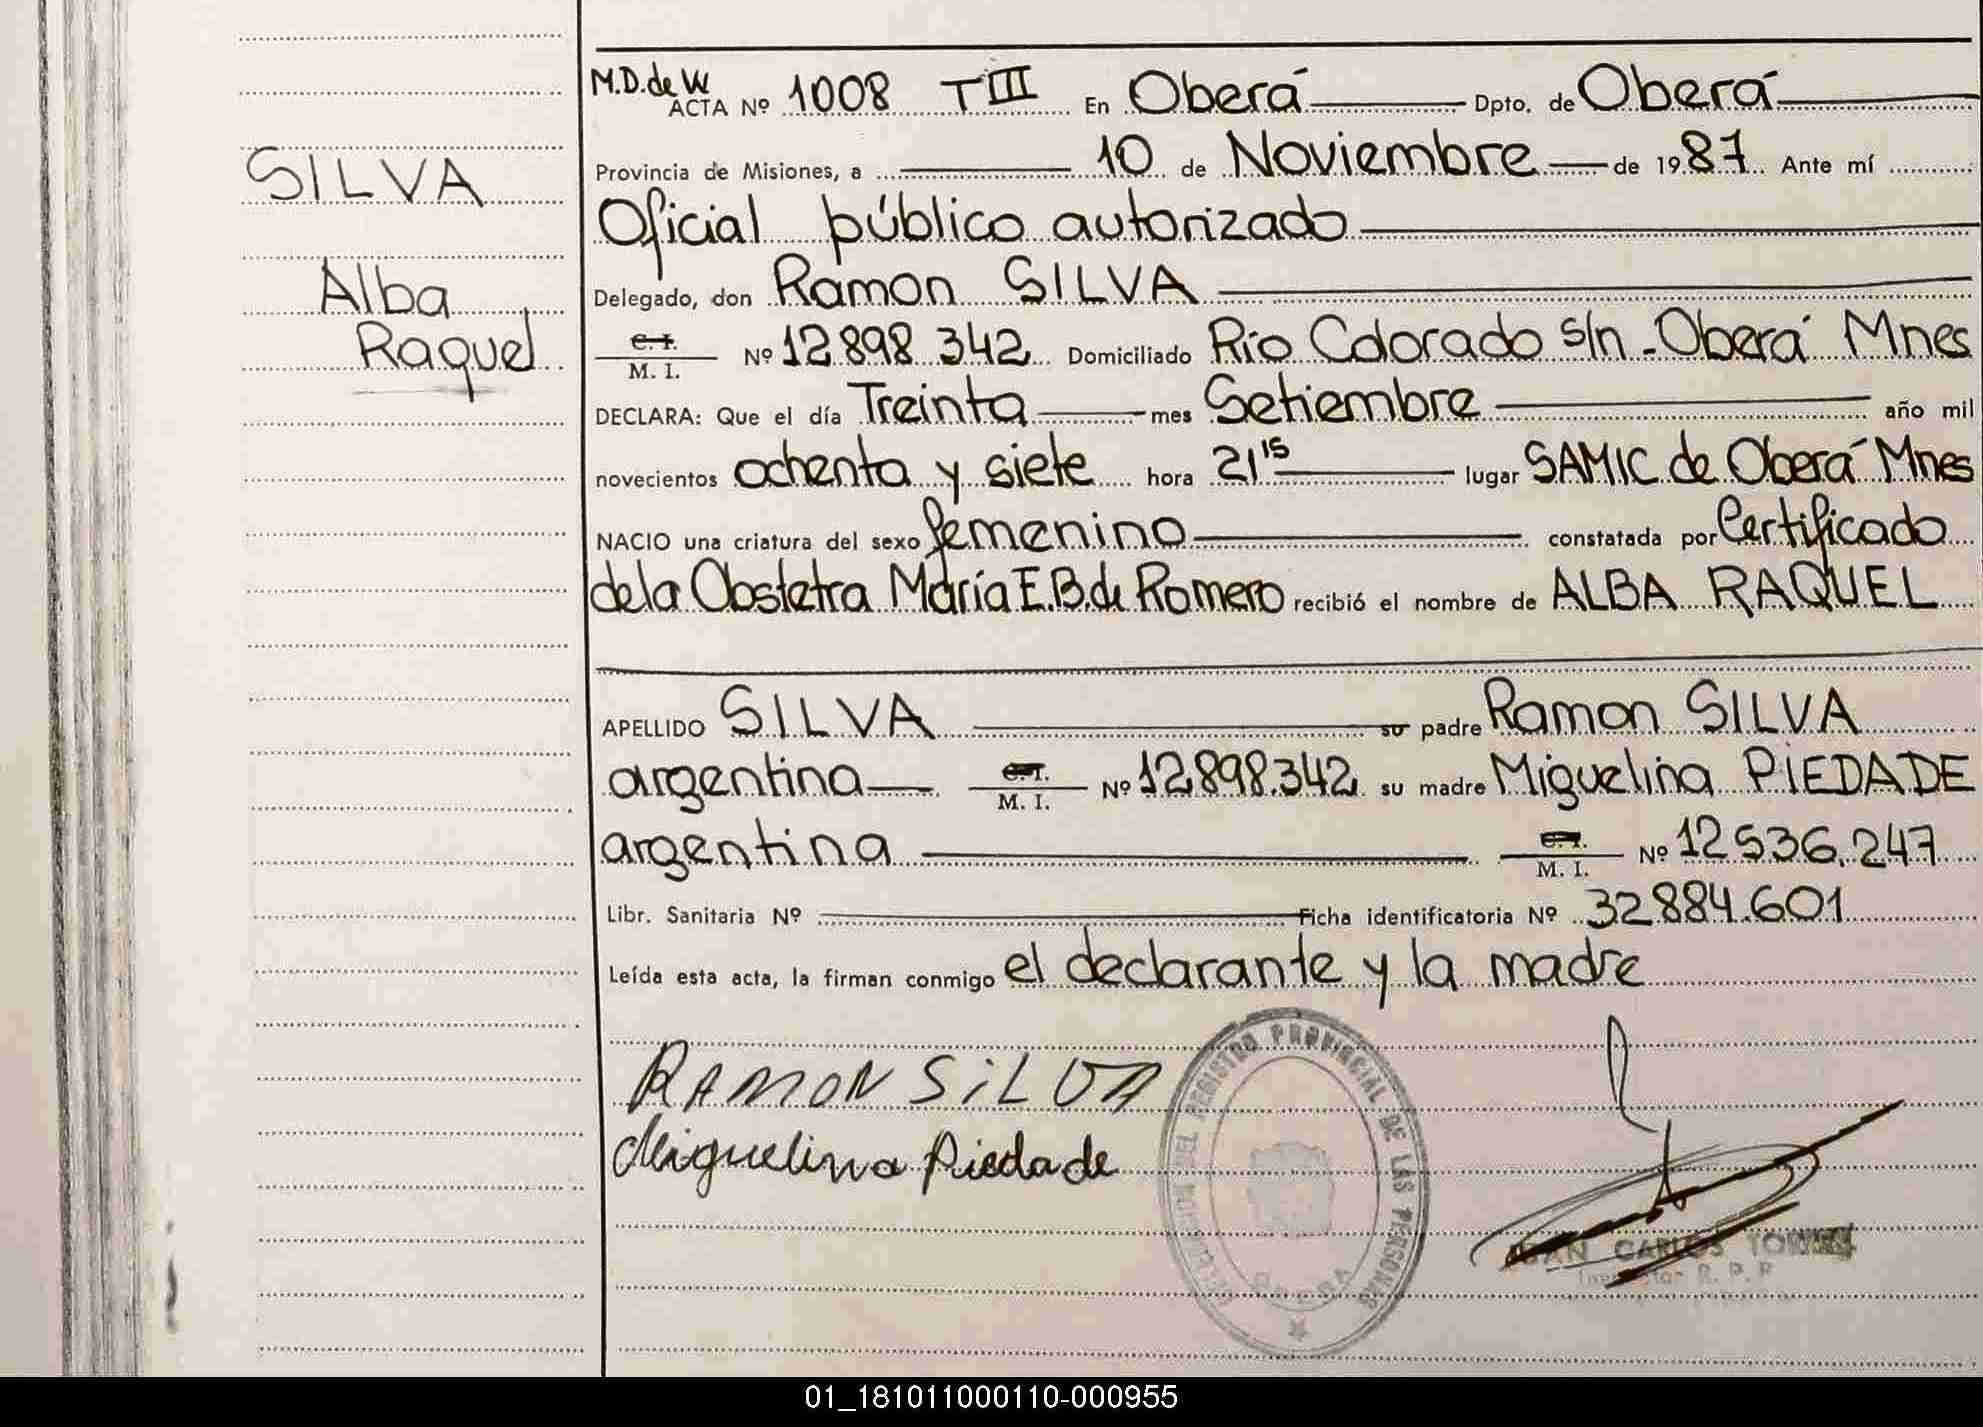 M.D. de W
ACTA Nº 1008 TIII En Oberá Dpto. de Oberá
Provincia de Misiones, a 10 de Noviembre de 1987 Ante mí
Oficial público autorizado
Delegado, don Ramon SILVA
C. I.
M. I. Nº 12 898 342 Domiciliado Río Colorado s/n - Oberá Mnes
DECLARA: Que el día Treinta mes Setiembre año mil
novecientos ochenta y siete hora 21 15 lugar SAMIC de Oberá Mnes
NACIO una criatura del sexo femenino constatada por Certificado
de la Obstetra María E.B. de Romero recibió el nombre de ALBA RAQUEL
APELLIDO SILVA su padre Ramon SILVA
argentina C. I. M. I. Nº 12.898.342 su madre Miguelina PIEDADE
argentina C. I. M. I. Nº 12 536.247
Libr. Sanitaria Nº Ficha identificatoria Nº 32 884.601
Leída esta acta, la firman conmigo el declarante y la madre
SILVA
Alba
Raquel
RAMON SiLVA
Miguelina Piedade
DEL REGISTRO PROVINCIAL DE LAS PERSONAS
OBERA
JUAN CARLOS
R. P. P.
01_181011000110-000955